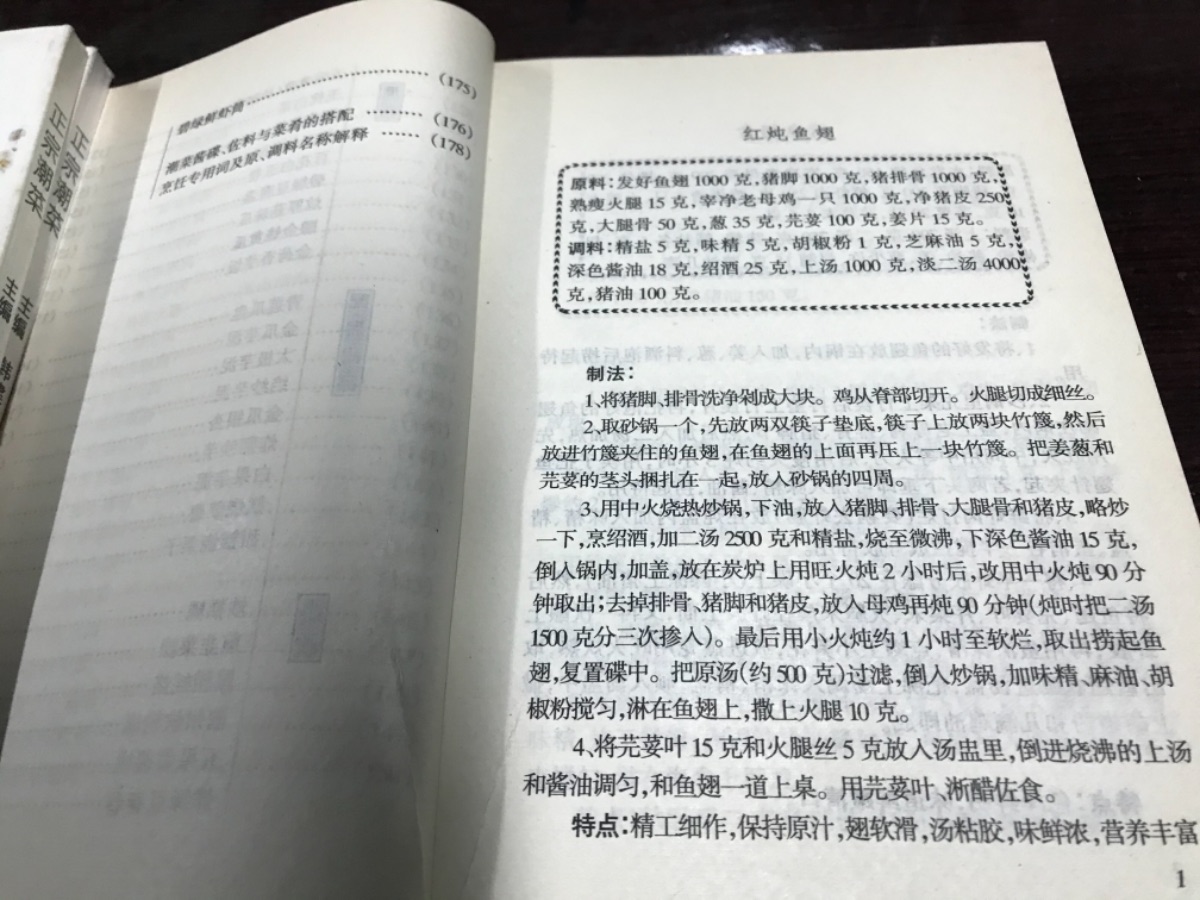 正宗潮菜
正宗潮菜
主编
主编 韩
碧绿鲜虾筒 (175)
潮菜酱碟、佐料与菜肴的搭配 (176)
烹饪专用词及原、调料名称解释 (178)
红炖鱼翅
原料:发好鱼翅 1000 克,猪脚 1000 克,猪排骨 1000 克,
熟瘦火腿 15 克,宰净老母鸡一只 1000 克,净猪皮 250
克,大腿骨 50 克,葱 35 克,芫荽 100 克,姜片 15 克。
调料:精盐 5 克,味精 5 克,胡椒粉 1 克,芝麻油 5 克,
深色酱油 18 克,绍酒 25 克,上汤 1000 克,淡二汤 4000
克,猪油 100 克。
制法:
1、将猪脚、排骨洗净剁成大块。鸡从脊部切开。火腿切成细丝。
2、取砂锅一个,先放两双筷子垫底,筷子上放两块竹篾,然后
放进竹篾夹住的鱼翅,在鱼翅的上面再压上一块竹篾。把姜葱和
芫荽的茎头捆扎在一起,放入砂锅的四周。
3、用中火烧热炒锅,下油,放入猪脚、排骨、大腿骨和猪皮,略炒
一下,烹绍酒,加二汤 2500 克和精盐,烧至微沸,下深色酱油 15 克,
倒入锅内,加盖,放在炭炉上用旺火炖 2 小时后,改用中火炖 90 分
钟取出;去掉排骨、猪脚和猪皮,放入母鸡再炖 90 分钟(炖时把二汤
1500 克分三次掺入)。最后用小火炖约 1 小时至软烂,取出捞起鱼
翅,复置碟中。把原汤(约 500 克)过滤,倒入炒锅,加味精、麻油、胡
椒粉搅匀,淋在鱼翅上,撒上火腿 10 克。
4、将芫荽叶 15 克和火腿丝 5 克放入汤盅里,倒进烧沸的上汤
和酱油调匀,和鱼翅一道上桌。用芫荽叶、淅醋佐食。
特点:精工细作,保持原汁,翅软滑,汤粘胶,味鲜浓,营养丰富
1